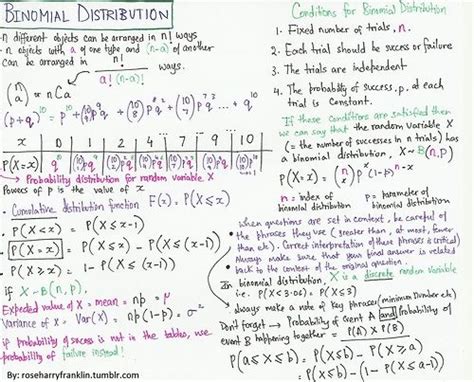 BINOMIAL DISTRIBUTION
n different objects can be arranged in n! ways
n objects with a of one type and (n-a) of another
can be arranged in n! / a!(n-a)! ways.
(n a) or nCa
(p+q)^10 = p^10 + (10 9) p^9 q + (10 8) p^8 q^2 + (10 7) p^7 q^3 ... + q^10
x 0 1 2 4 7 9 10
P(X=x)
Probability distribution for random variable X
Powers of p is the value of x
- Cumulative distribution function F(x) = P(X≤x)
• P(X<x) = P(X≤x-1)
• P(X=x) = P(X≤x) - P(X≤(x-1))
• P(X≥x) = 1-P(X≤(x-1))
if X~B(n,p)
Expected value of X = mean = np = μ
Variance of X - Var(X) = np(1-p) = σ²
if probability of success is not in the tables, use
probability of failure instead!
By: roseharryfranklin.tumblr.com
Conditions for Binomial Distribution
1. Fixed number of trials, n.
2. Each trial should be success or failure
3. The trials are independent
4. The probability of success, p, at each
trial is Constant.
If these conditions are satisfied then
we can say that the random variable X
(= the number of successes in n trials) has
a binomial distribution, X~B(n,p)
P(X=x) = (n x) p^x (1-p)^n-x
n = index of binomial distribution
p = parameter of binomial distribution
When questions are set in context, be careful of
the phrases they use (greater than, at most, fewer
than etc). Correct interpretation of these phrases is critical)
Always make sure that your final answer is related
back to the context of the original question.
In binomial distribution, X is a discrete random variable
i.e. P(X≤3.06) = P(X≤3)
always make a note of key phrases (minimum number etc)
Don't forget → Probability of event A and Probability of
event B happening together = P(A) X P(B)
P(a≤X≤b) = P(X≤b) - P(X≥a)